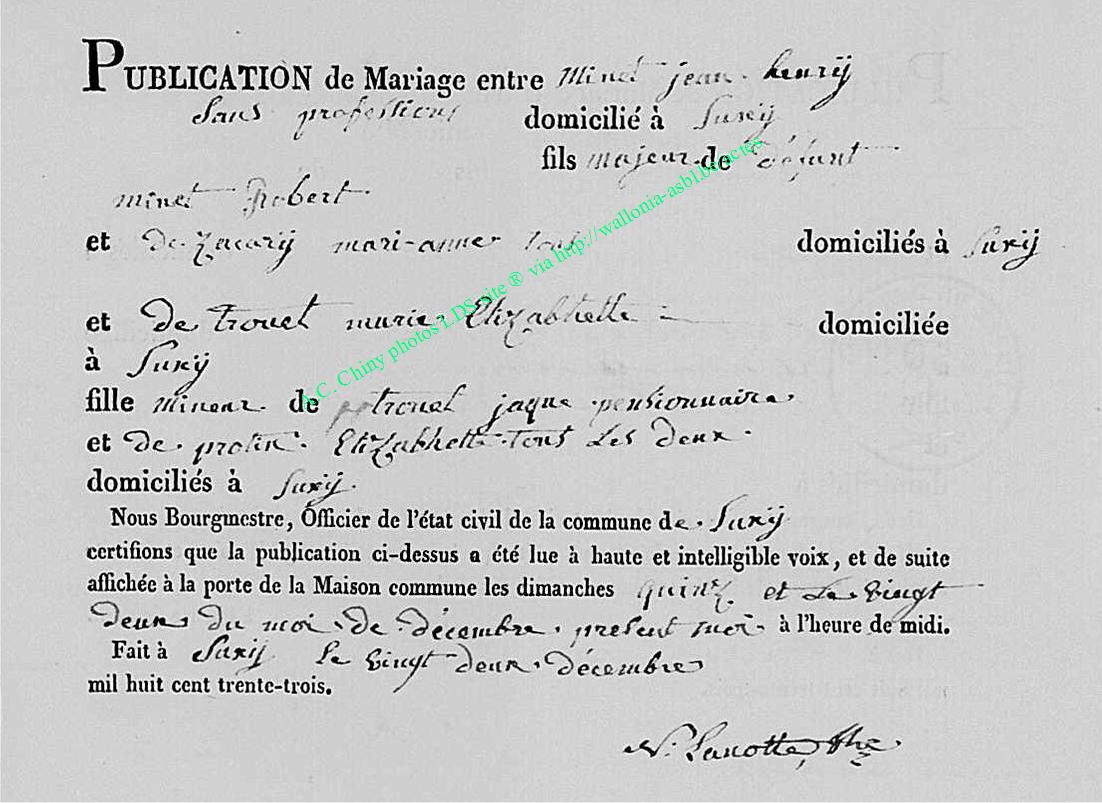 PUBLICATION de Mariage entre Minet jean henrij
Sans profession domicilié à Suxij
fils majeur de défunt
minet Robert
et de Zacarij mari-anne tous domiciliés à Suxij
et de trouet marie Elizabhette domiciliée
à Suxij
fille mineur de trouet jaque pensionnaire
et de protin Elizabhette tous Les deux
domiciliés à Suxij
Nous Bourgmestre, Officier de l'état civil de la commune de Suxij
certifions que la publication ci-dessus a été lue à haute et intelligible voix, et de suite
affichée à la porte de la Maison commune les dimanches quinz et Le vingt
deux du moi de décembre present moi à l'heure de midi.
Fait à Suxij Le vingt deux décembre
mil huit cent trente-trois.
N. Lanotte
A.C. Chiny photos LDS site ® via http://wallonia-asbl.be/actes